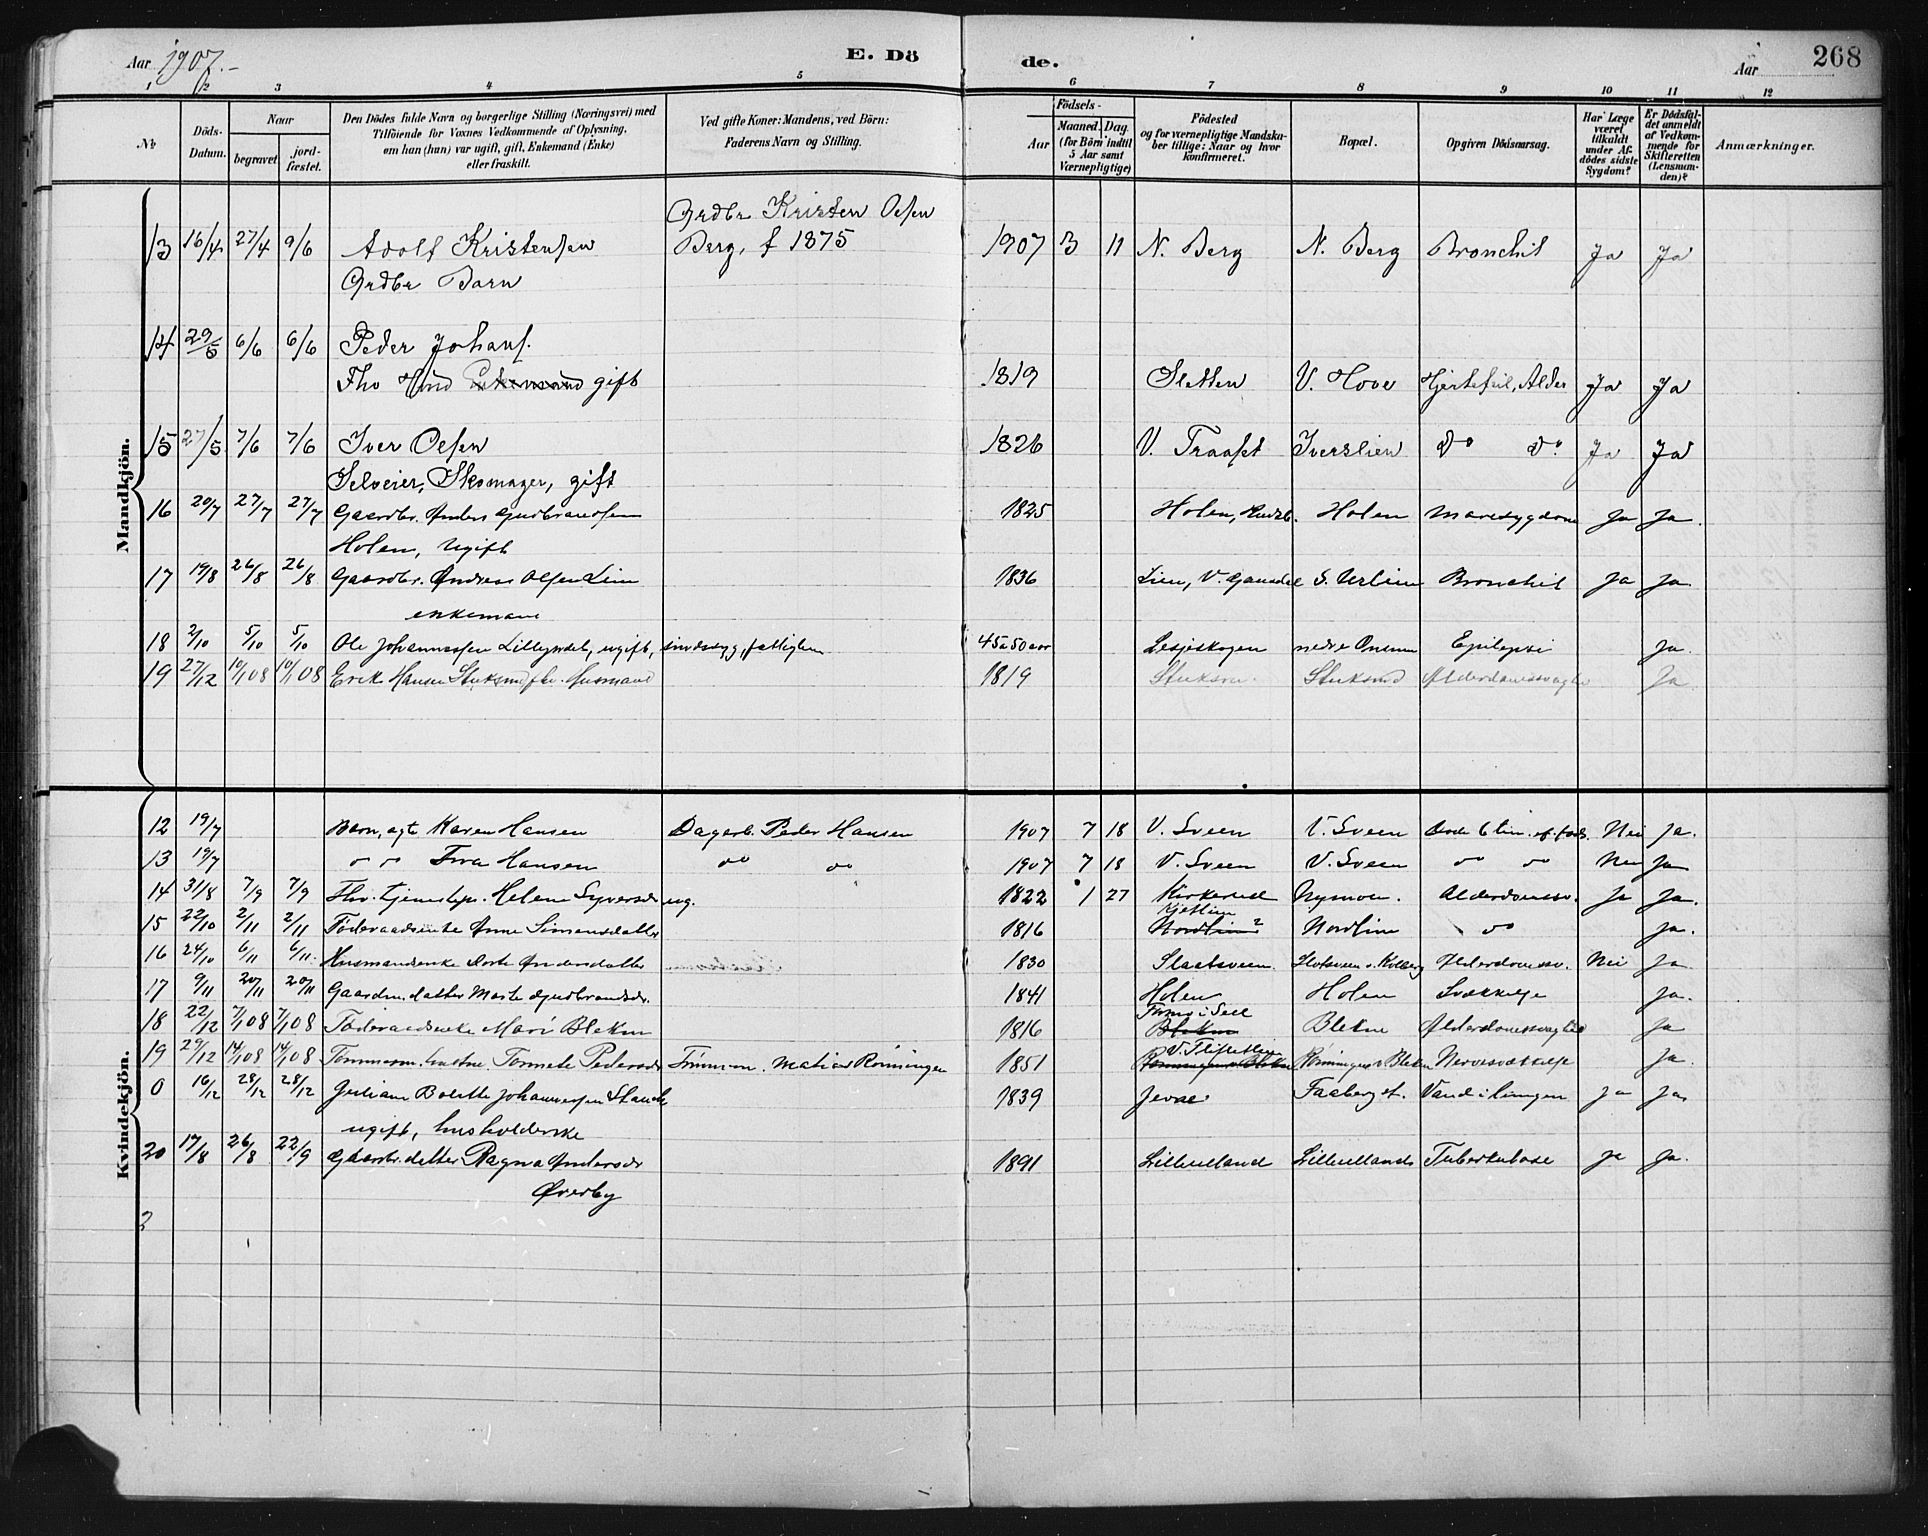 Aar 1907.-
E. Dö
de.
Aar
268
1 2 3 4 5 6 7 8 9 10 11 12
No
Döds-
Datum.
Naar
begravet
jord-
fæstet.
Den Dödes fulde Navn og borgerlige Stilling (Næringsvei) med
Tilföiende for Voxnes Vedkommende af Oplysning,
om han (hun) var ugift, gift, Enkemand (Enke)
eller fraskilt.
Ved gifte Koner: Mandens, ved Börn:
Faderens Navn og Stilling.
Födsels-
Aar
Maaned. Dag
(for Börn indtil
5 Aar samt
Værnepligtige)
Födested
og for værnepligtige Mandska-
ber tillige: Naar og hvor
konfirmeret.
Bopæl.
Opgiven Dödsaarsag.
Har Læge
været
tilkaldt
under Af-
dödes sidste
Sygdom?
Er Dödsfal-
det anmeldt
af Vedkom-
mende for
Skifteretten
(Lensman-
den)?
Anmærkninger.
Mandkjön.
Grdbr Kristen Olsen
13 16/4 27/4 9/6 Adolf Kristensen Berg, f 1875 1907 3 11 N. Berg N. Berg Bronchit Ja Ja
Grdbr Barn
14 29/5 6/6 6/6 Peder Johans.
Fhv Hmd Enkemand gift 1819 Sletten V. Hove Hjertefeil, Alder Ja Ja
15 27/5 7/6 7/6 Iver Olsen 1826 V. Traaset Iverslien Do Do Ja Ja
Selveier, Skomager, gift
16 20/7 27/7 27/7 Gaardbr. Anders Gudbrandsen 1825 Holen, Holen Mavesygdom Ja Ja.
Holen, Ugift
17 19/8 26/8 26/8 Gaardbr. Andreas Olsen Lien 1836 Lien, V. Gausdal Bronchit Ja Ja
enkemand
18 2/10 5/10 5/10 Ole Johannessen ugift, sindssyg, fattiglem 45 a 50 aar Lesjeskogen nedre Epilepsi Ja.
19 27/12 10/1 08 10/1 08 Erik Hansen fhv. Husmand 1819 Alderdomssvaghed Ja.
Kvindekjön.
12 19/7 Barn, egt Karen Hansen Dagarb. Peder Hansen 1907 7 18 V. Sveen V. Sveen Døde 6 tim. ef. føds. Nei Ja.
13 19/7 do do Hansen do do 1907 7 18 V. Sveen V. Sveen do do Nei Ja
14 31/8 7/9 7/9 Fhv. tjenestep. Helene Syversdr ug. 1822 1 27 Kirkerud Nymoen. Alderdomssv. Ja Ja.
Kjetlien
15 22/10 2/11 2/11 Föderaadsenke Anne Simensdatter 1816 Nordlien? Nordlien do Ja.
16 24/10 6/11 6/11 Husmandsenke Dorte Andersdatter 1830 Slaatsveen Alderdomssv. Nei Ja
17 9/11 20/11 20/11 Gaardm. datter Marte Gudbrandsdr. 1841 Holen Holen Svækkelse Ja.
Formo i Sell
18 22/12 7/1 08 7/1 08 Föderaadsenke Mari Bleken 1816 Bleken Bleken Alderdomssvaghed Ja
19 29/12 14/1 08 14/1 08 Tømmerm. hustru Pedersdr Tömmerm. Matias Rönningen 1851 Rönningen u Bleken Nervesvækkelse Ja.
0 16/12 28/12 28/12 Juliane Bolette Johannessen 1839 Jevne Faaberg st. Vand i Lungen Ja Ja
ugift, husholderske
20 17/8 26/8 22/9 Gaardbr. datter Ragna Andersdr 1891 Lillehaland Tuberkulose Ja Ja.
Øverby
2